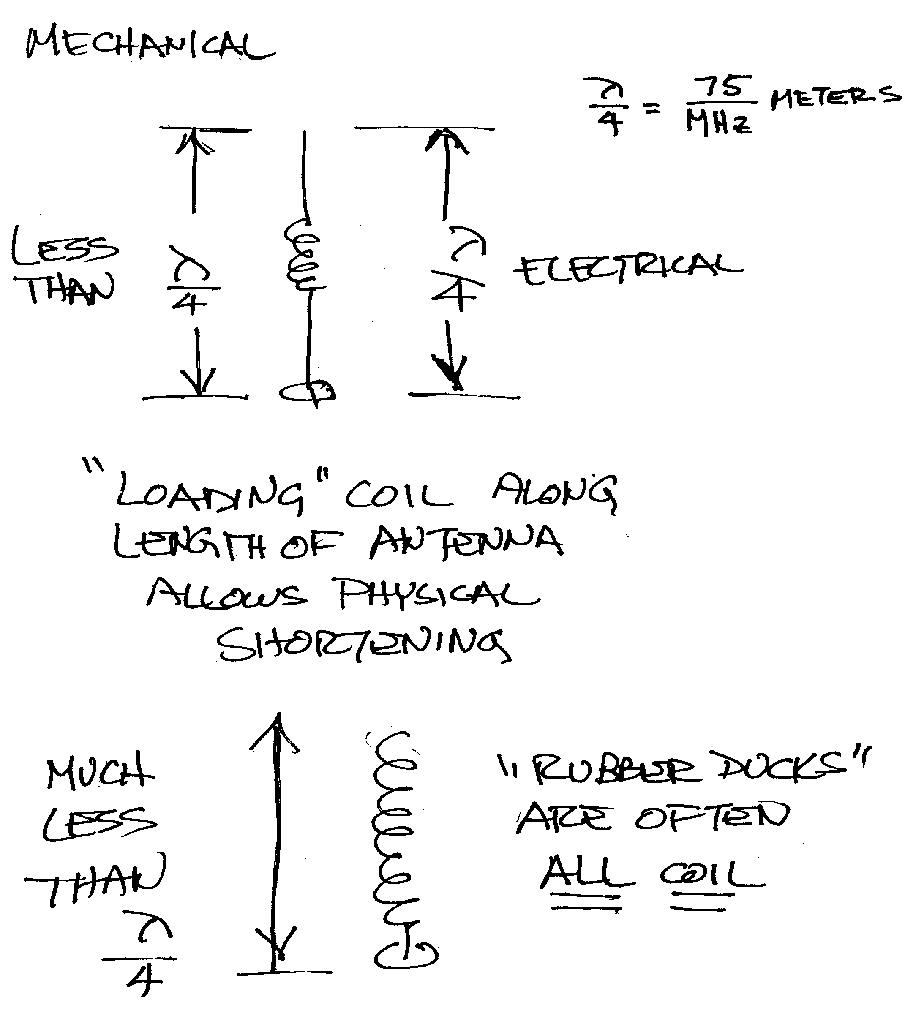 MECHANICAL
λ/4 = 75/MHz METERS
LESS
THAN
λ/4
λ/4
ELECTRICAL
"LOADING" COIL ALONG
LENGTH OF ANTENNA
ALLOWS PHYSICAL
SHORTENING
MUCH
LESS
THAN
λ/4
"RUBBER DUCKS"
ARE OFTEN
ALL COIL